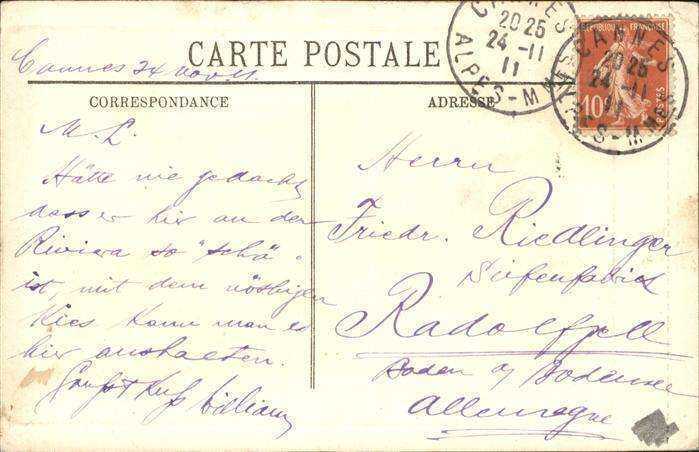 CARTE POSTALE
Cannes 24 Nov. 11.
CORRESPONDANCE
M. L.
Hätte nie gedacht
dass er hier an der
Riviera so "schä"
ist, mit dem nöthigen
Kies kann man es
hier aushalten.
Gruss + Kuss William
ADRESSE
Herrn
Friedr. Riedlinger
Seifenfabrick
Radolfzell
Baden a/ Bodensee
Allemagne
CANNES
20 25
24 -11
11
ALPES-M
REPUBLIQUE FRANÇAISE
10
POSTES
CANNES
20 25
24 -11